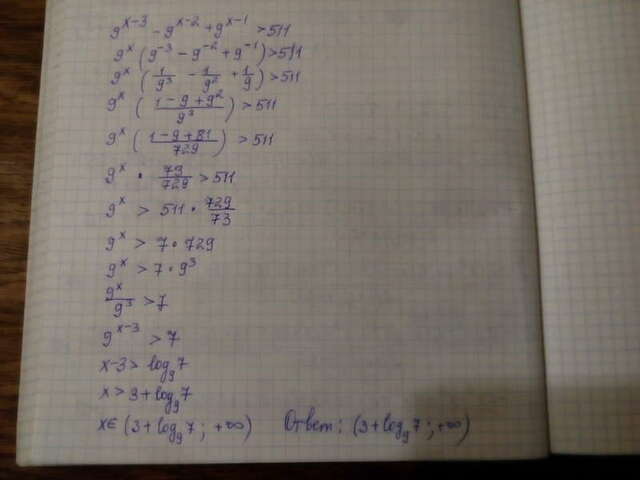 9^{x-3} - 9^{x-2} + 9^{x-1} > 511
9^x (9^{-3} - 9^{-2} + 9^{-1}) > 511
9^x (1/9^3 - 1/9^2 + 1/9) > 511
9^x ((1 - 9 + 9^2)/9^3) > 511
9^x ((1 - 9 + 81)/729) > 511
9^x · 73/729 > 511
9^x > 511 · 729/73
9^x > 7 · 729
9^x > 7 · 9^3
9^x/9^3 > 7
9^{x-3} > 7
x-3 > log_9 7
x > 3 + log_9 7
x ∈ (3 + log_9 7; +∞) Ответ: (3 + log_9 7; +∞)